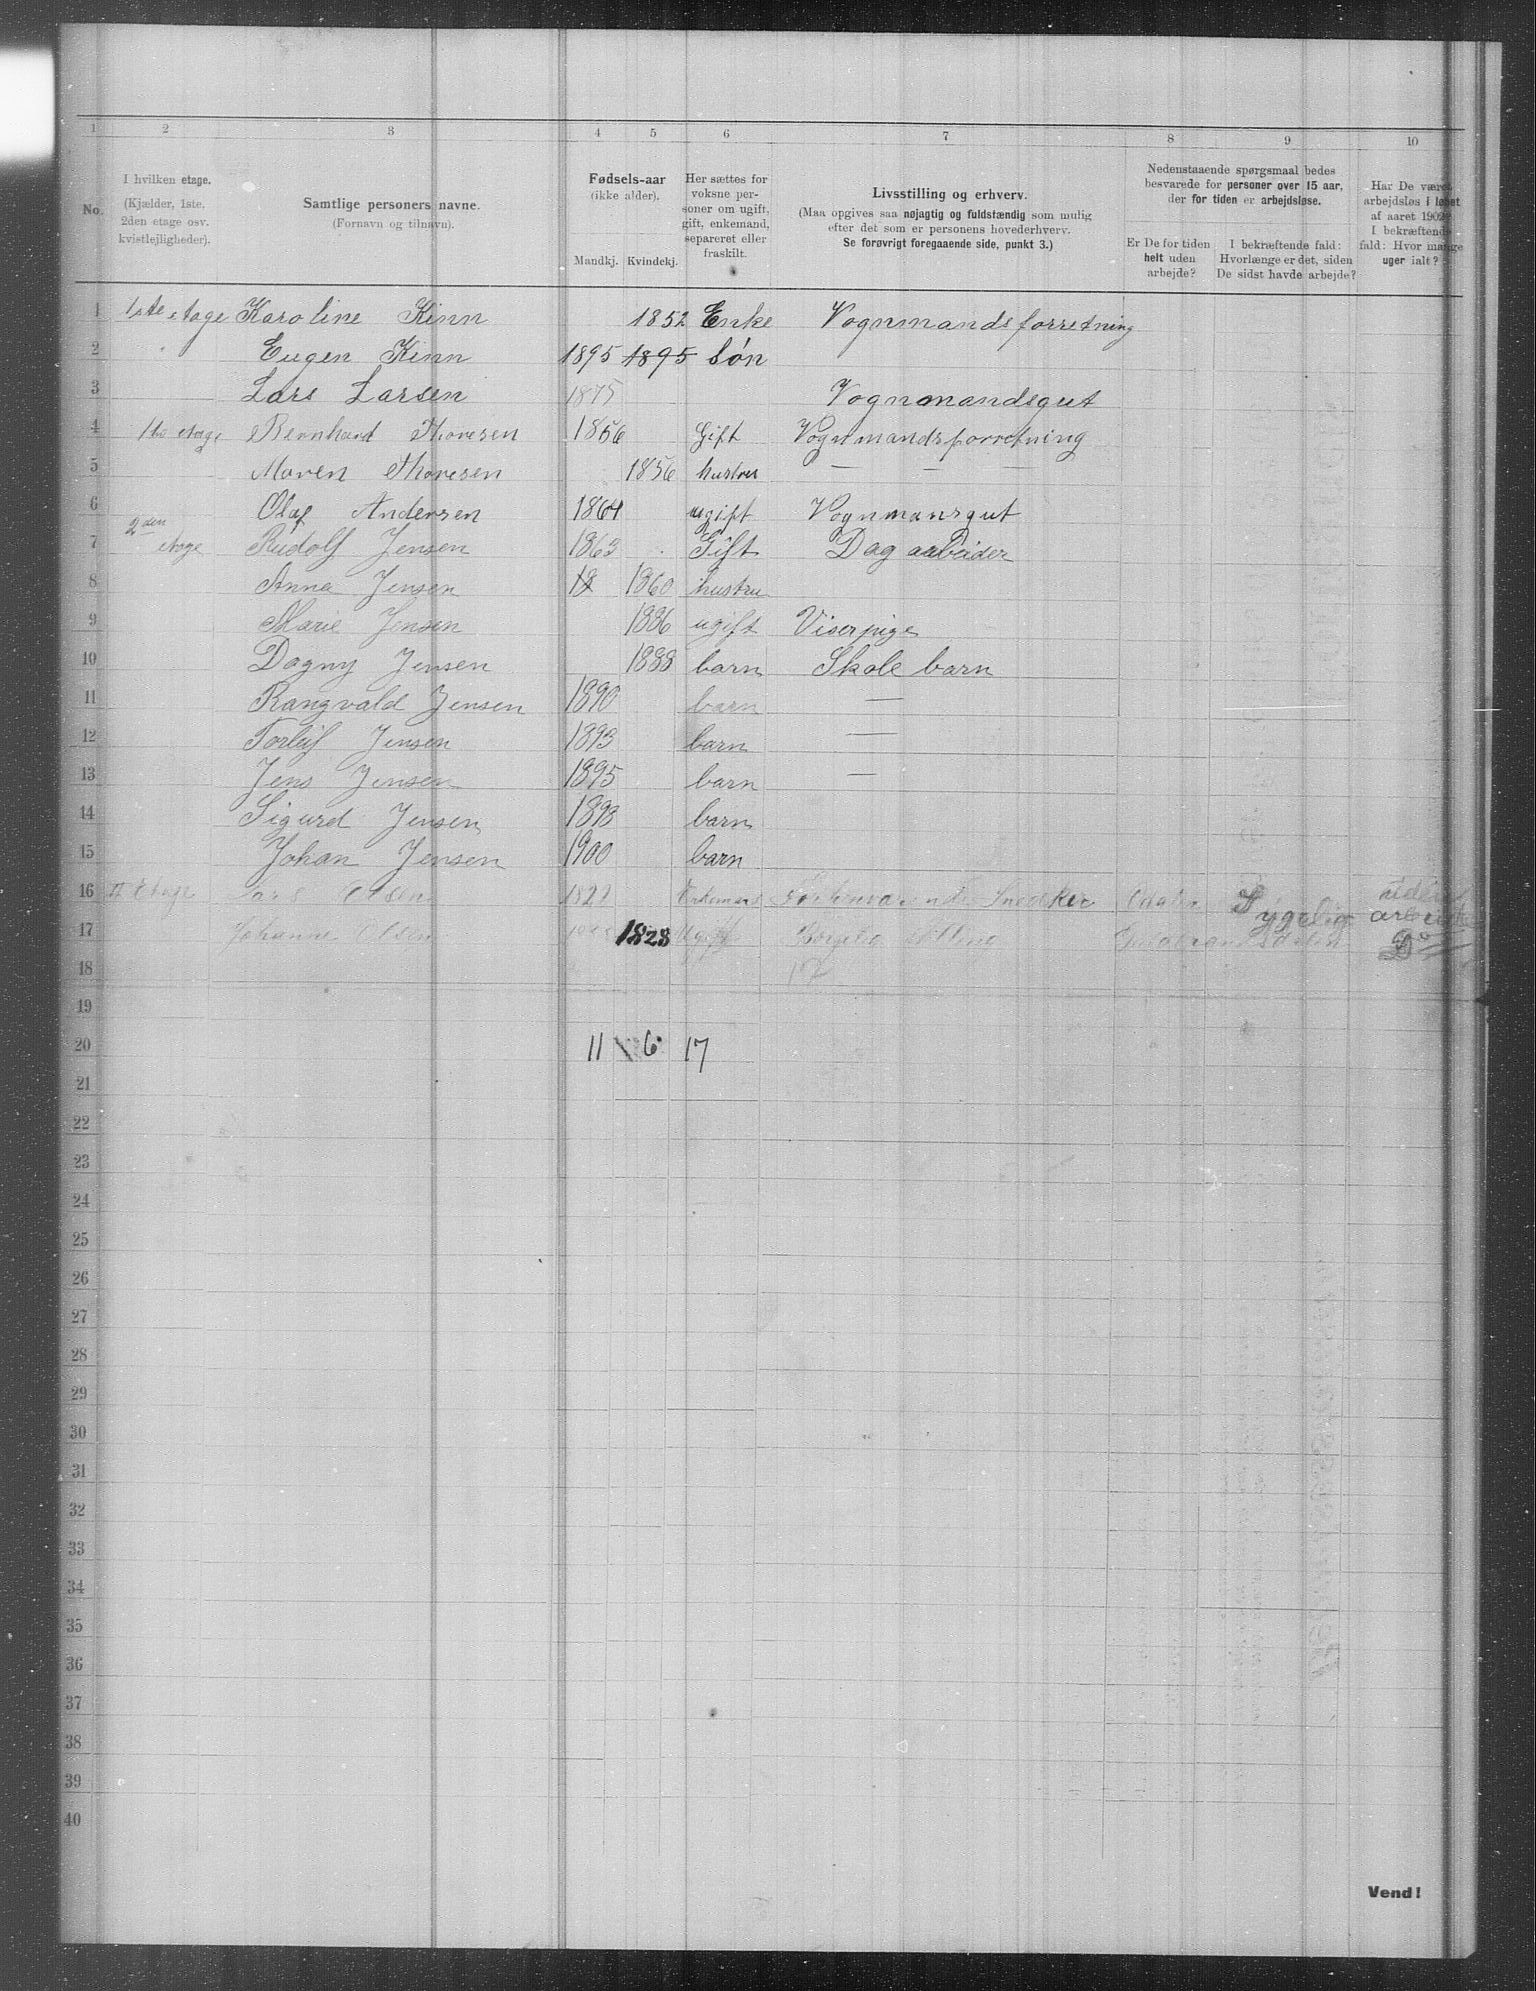 1 2 3 4 5 6 7 8 9 10
No.
I hvilken etage.
(Kjælder, 1ste,
2den etage osv.
kvistlejligheder).
Samtlige personers navne.
(Fornavn og tilnavn).
Fødsels-aar
(ikke alder).
Mandkj. Kvindekj.
Her sættes for
voksne per-
soner om ugift,
gift, enkemand,
separeret eller
fraskilt.
Livsstilling og erhverv.
(Maa opgives saa nøjagtig og fuldstændig som mulig
efter det som er personens hovederhverv.
Se forøvrigt foregaaende side, punkt 3.)
Nedenstaaende spørgsmaal bedes
besvarede for personer over 15 aar,
der for tiden er arbejdsløse.
Er De for tiden
helt uden
arbejde?
I bekræftende fald:
Hvorlænge er det, siden
De sidst havde arbejde?
Har De været
arbejdsløs i løbet
af aaret 1902?
I bekræftende
fald: Hvor mange
uger ialt?
1 1ste etage Karoline Kinn 1852 Enke Vognmandsforretning
2 Eugen Kinn 1895 1895 Søn
3 Lars Larsen 1875 Vognmandsgut
4 1ste etage Bernhard Thoresen 1856 Gift Vognmandsforretning
5 Maren Thoresen 1856 hustru — — —
6 Olaf Andersen 1864 ugift Vognmansgut
7 2den etage Rudolf Jensen 1863 Gift Dag arbeider
8 Anna Jensen 18 1860 hustru
9 Marie Jensen 1886 ugift Viserpige
10 Dagny Jensen 1888 barn Skole barn
11 Rangvald Jensen 1890 barn —
12 Torleif Jensen 1893 barn —
13 Jens Jensen 1895 barn —
14 Sigurd Jensen 1898 barn
15 Johan Jensen 1900 barn
16 II Etage Lars Olsen Enkemand Snedker Sygelig arbeide
17 Johanne Olsen 1828 Ugift Do
18 17
19
20 11 6 17
21
22
23
24
25
26
27
28
29
30
31
32
33
34
35
36
37
38
39
40
Vend!